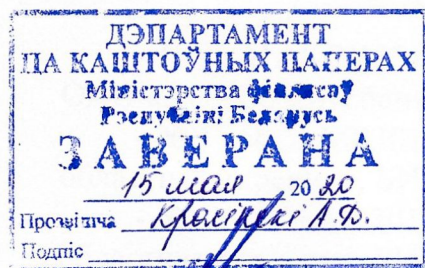 ДЭПАРТАМЕНТ
ПА КАШТОЎНЫХ ПАПЕРАХ
Міністэрства фінансаў
Рэспублікі Беларусь
ЗАВЕРАНА
15 мая 20 20
Прозвішча Красінскі А.В.
Подпіс